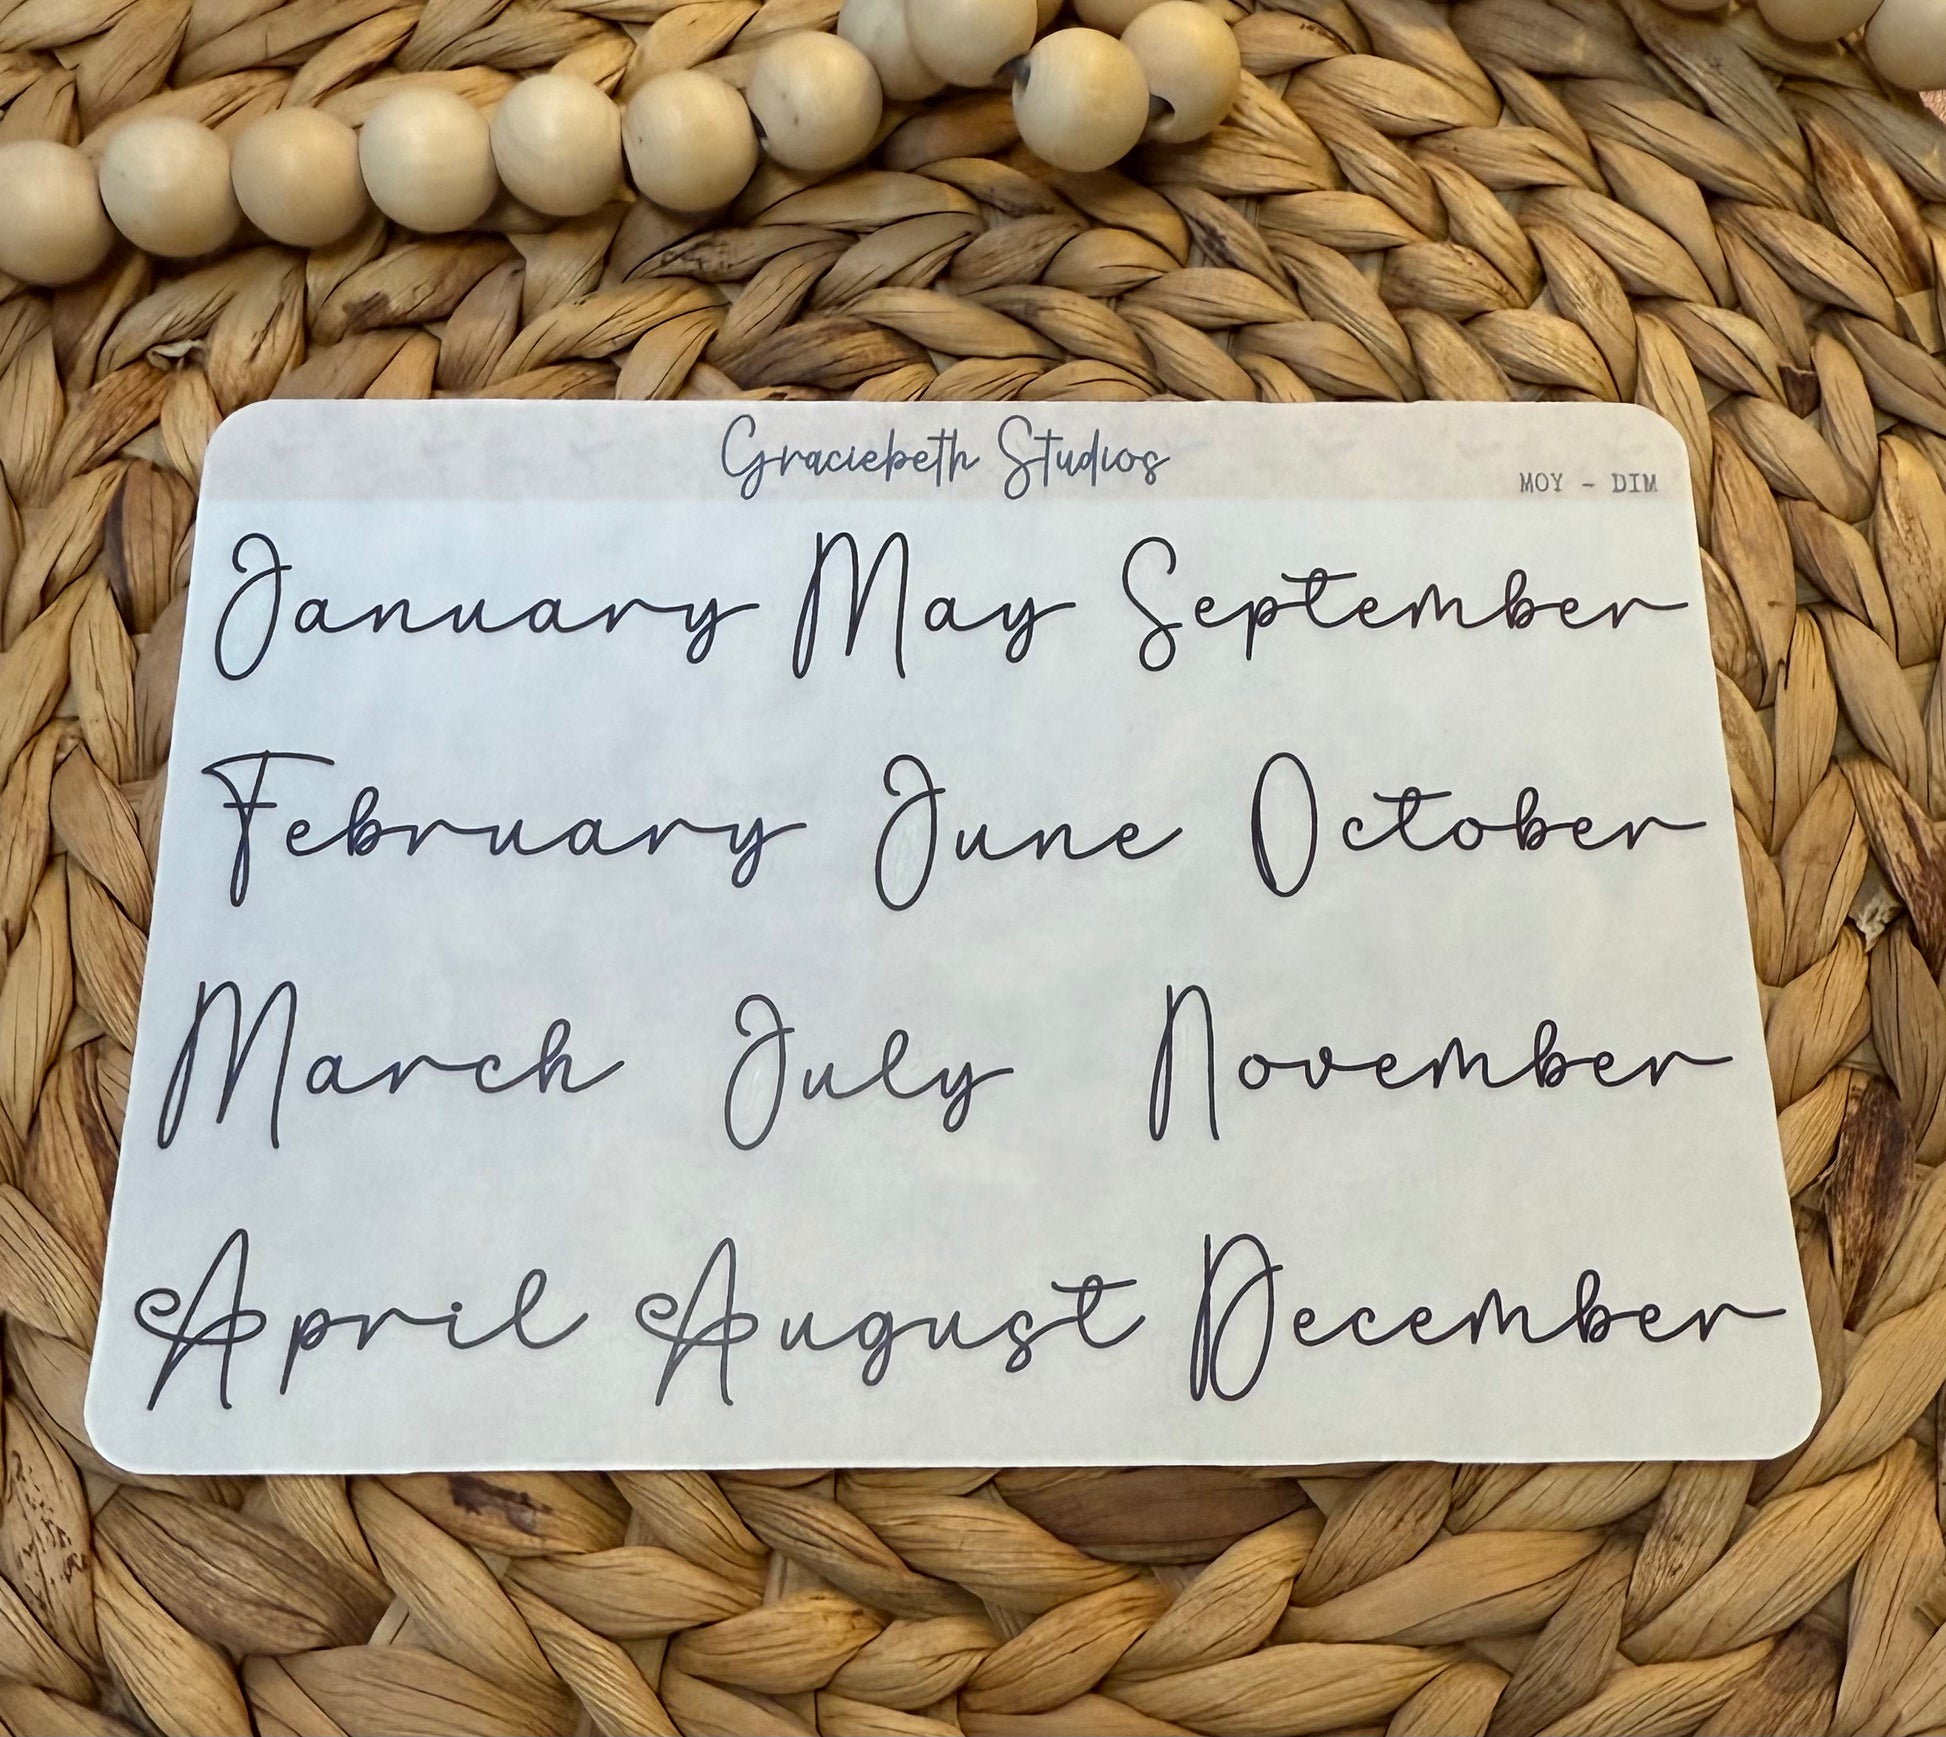 Graciebeth Studios
MOY - DIM
January May September
February June October
March July November
April August December